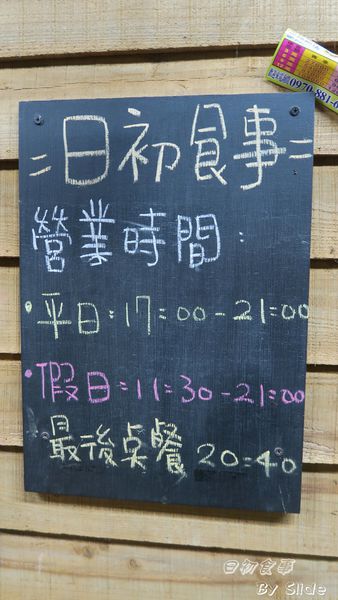 =日初食事=
營業時間:
•平日:17:00-21:00
•假日:11:30-21:00
最後點餐 20:40
0970-881-0
日初食事
By Slide